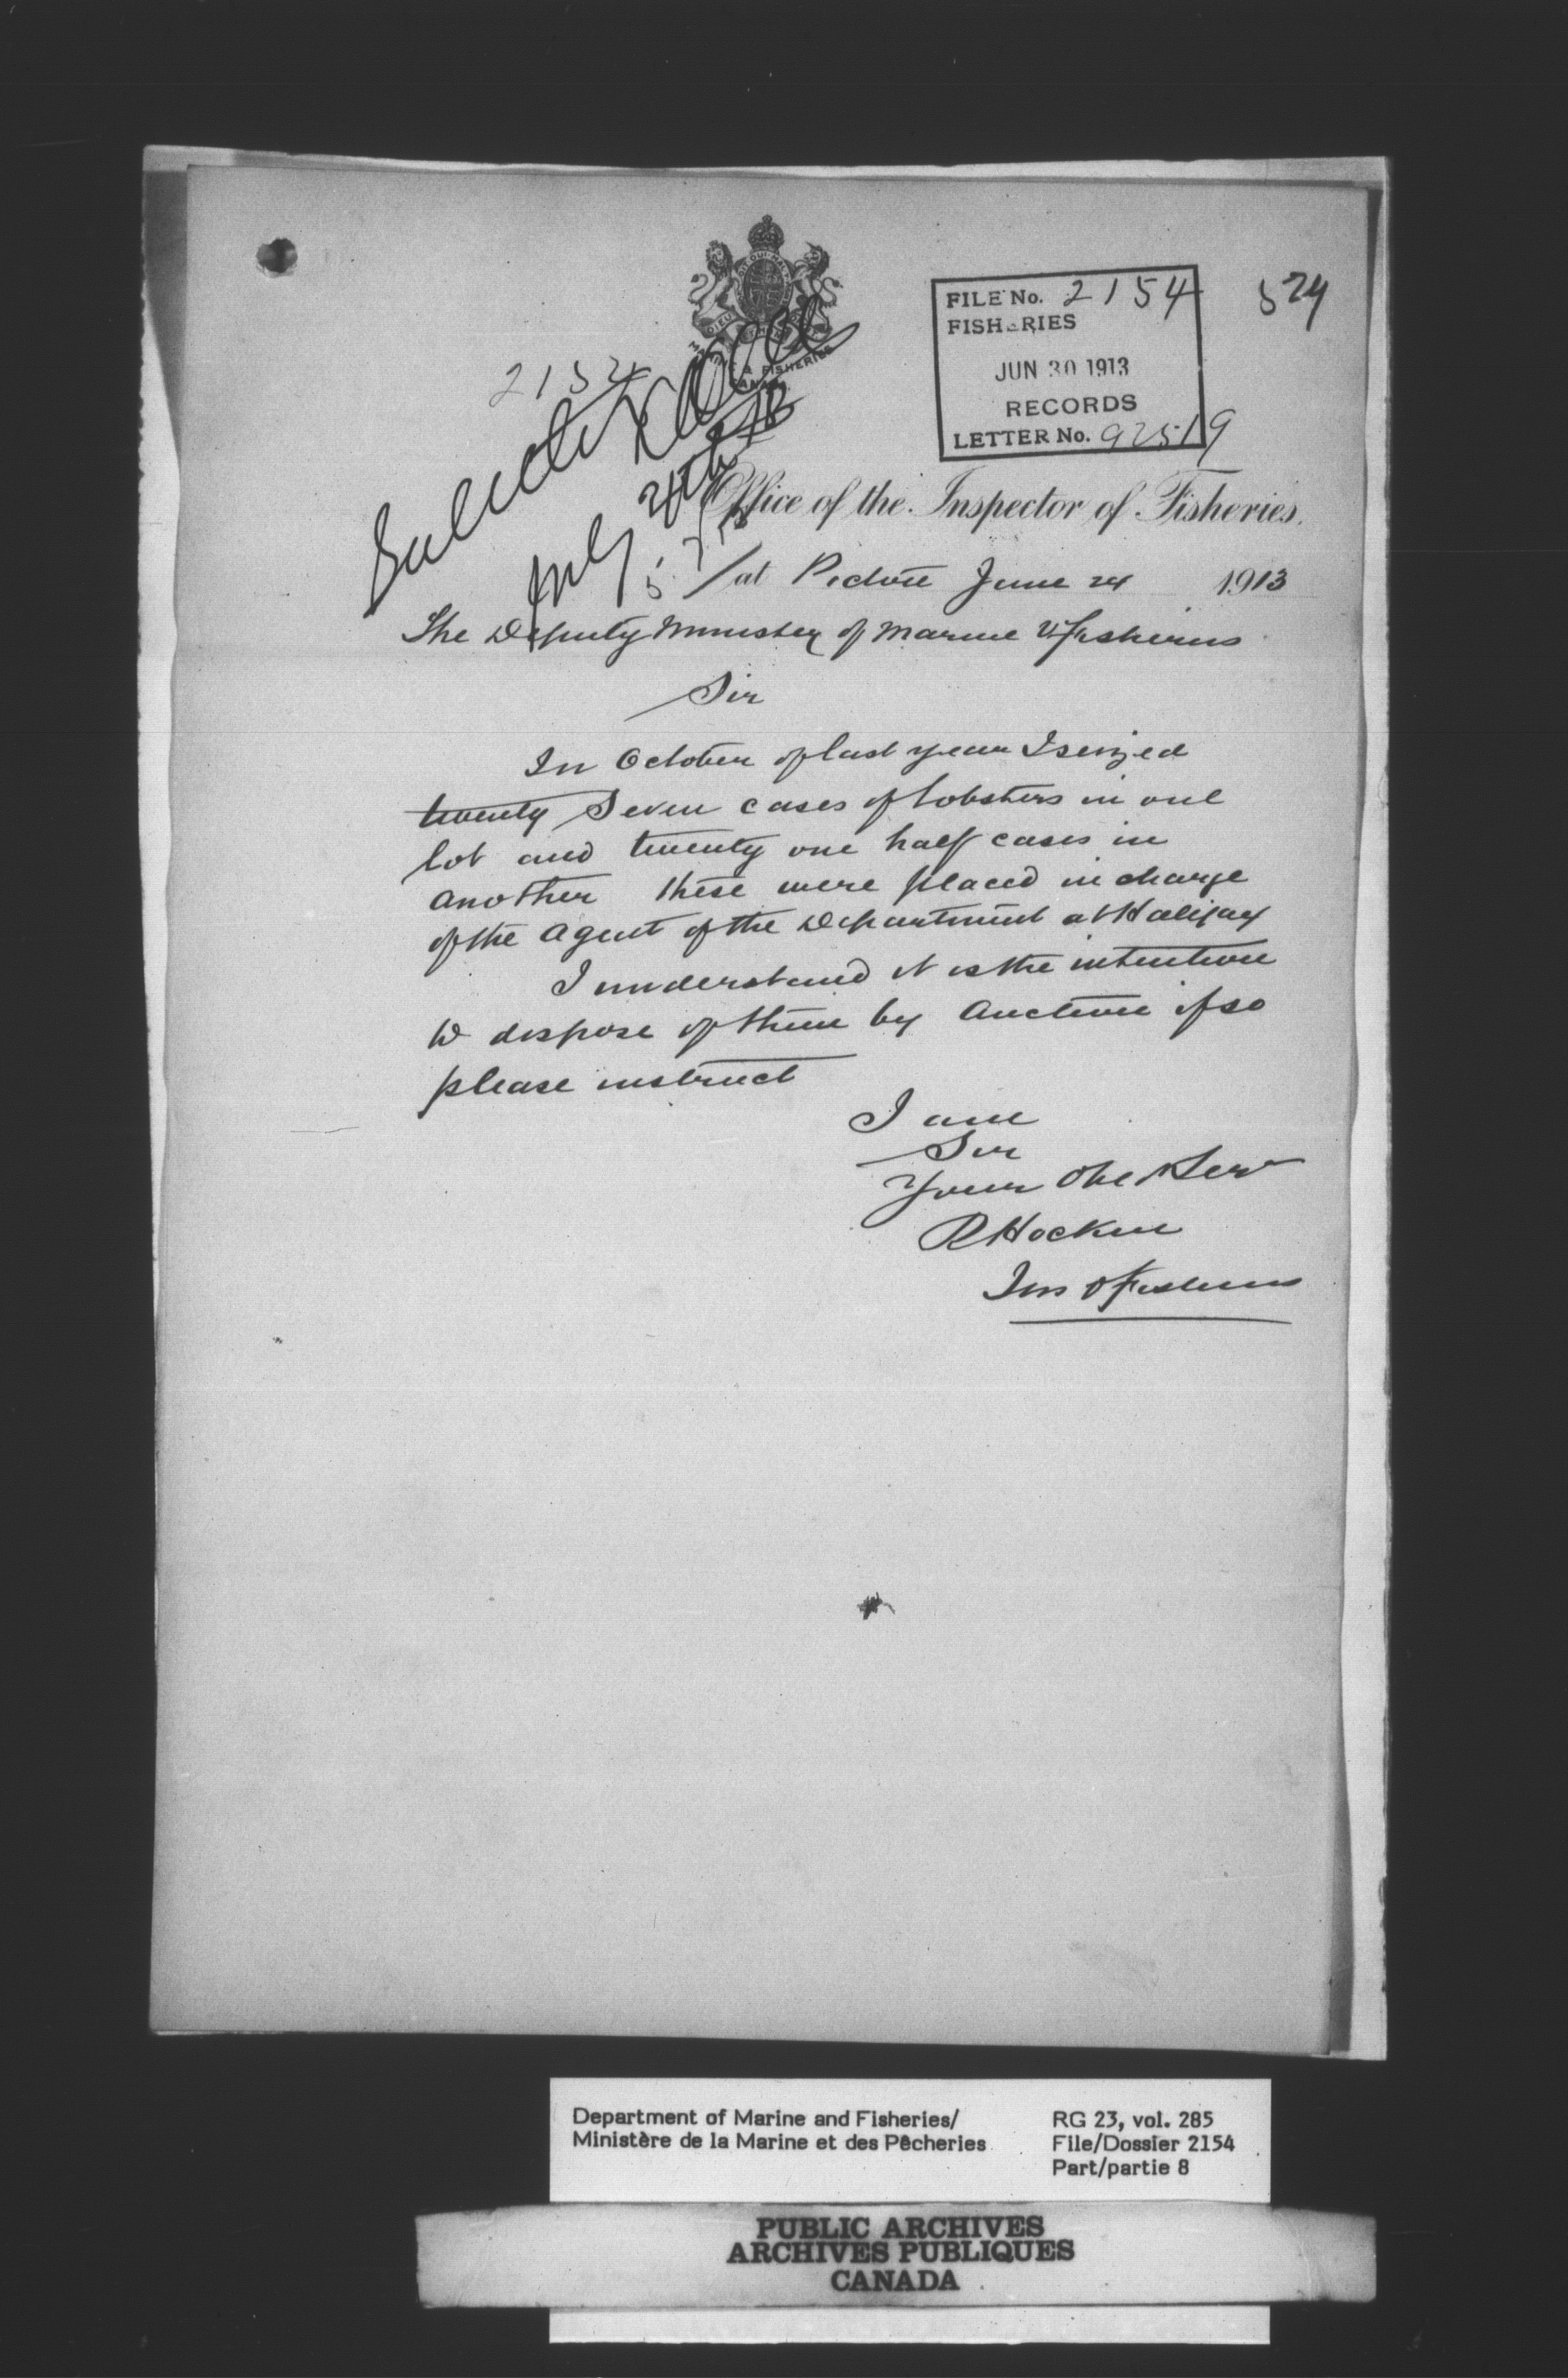 FILE No. 2154
524
FISHERIES
JUN 30 1913
RECORDS
LETTER No. 92519
MARINE & FISHERIES
CANADA
2154
July
Office of the Inspector of Fisheries.
at Pictou June 24 1913
The Deputy Minister of Marine & Fisheries
Sir
In October of last year I seized
twenty Seven cases of lobsters in one
lot and twenty one half cases in
another these were placed in charge
of the agent of the Department at Halifax
I understand it is the intention
to dispose of them by Auction if so
please instruct
I am
Sir
Your Obe Ser
R Hockin
Ins of Fisheries
Department of Marine and Fisheries/
Ministère de la Marine et des Pêcheries
RG 23, vol. 285
File/Dossier 2154
Part/partie 8
PUBLIC ARCHIVES
ARCHIVES PUBLIQUES
CANADA